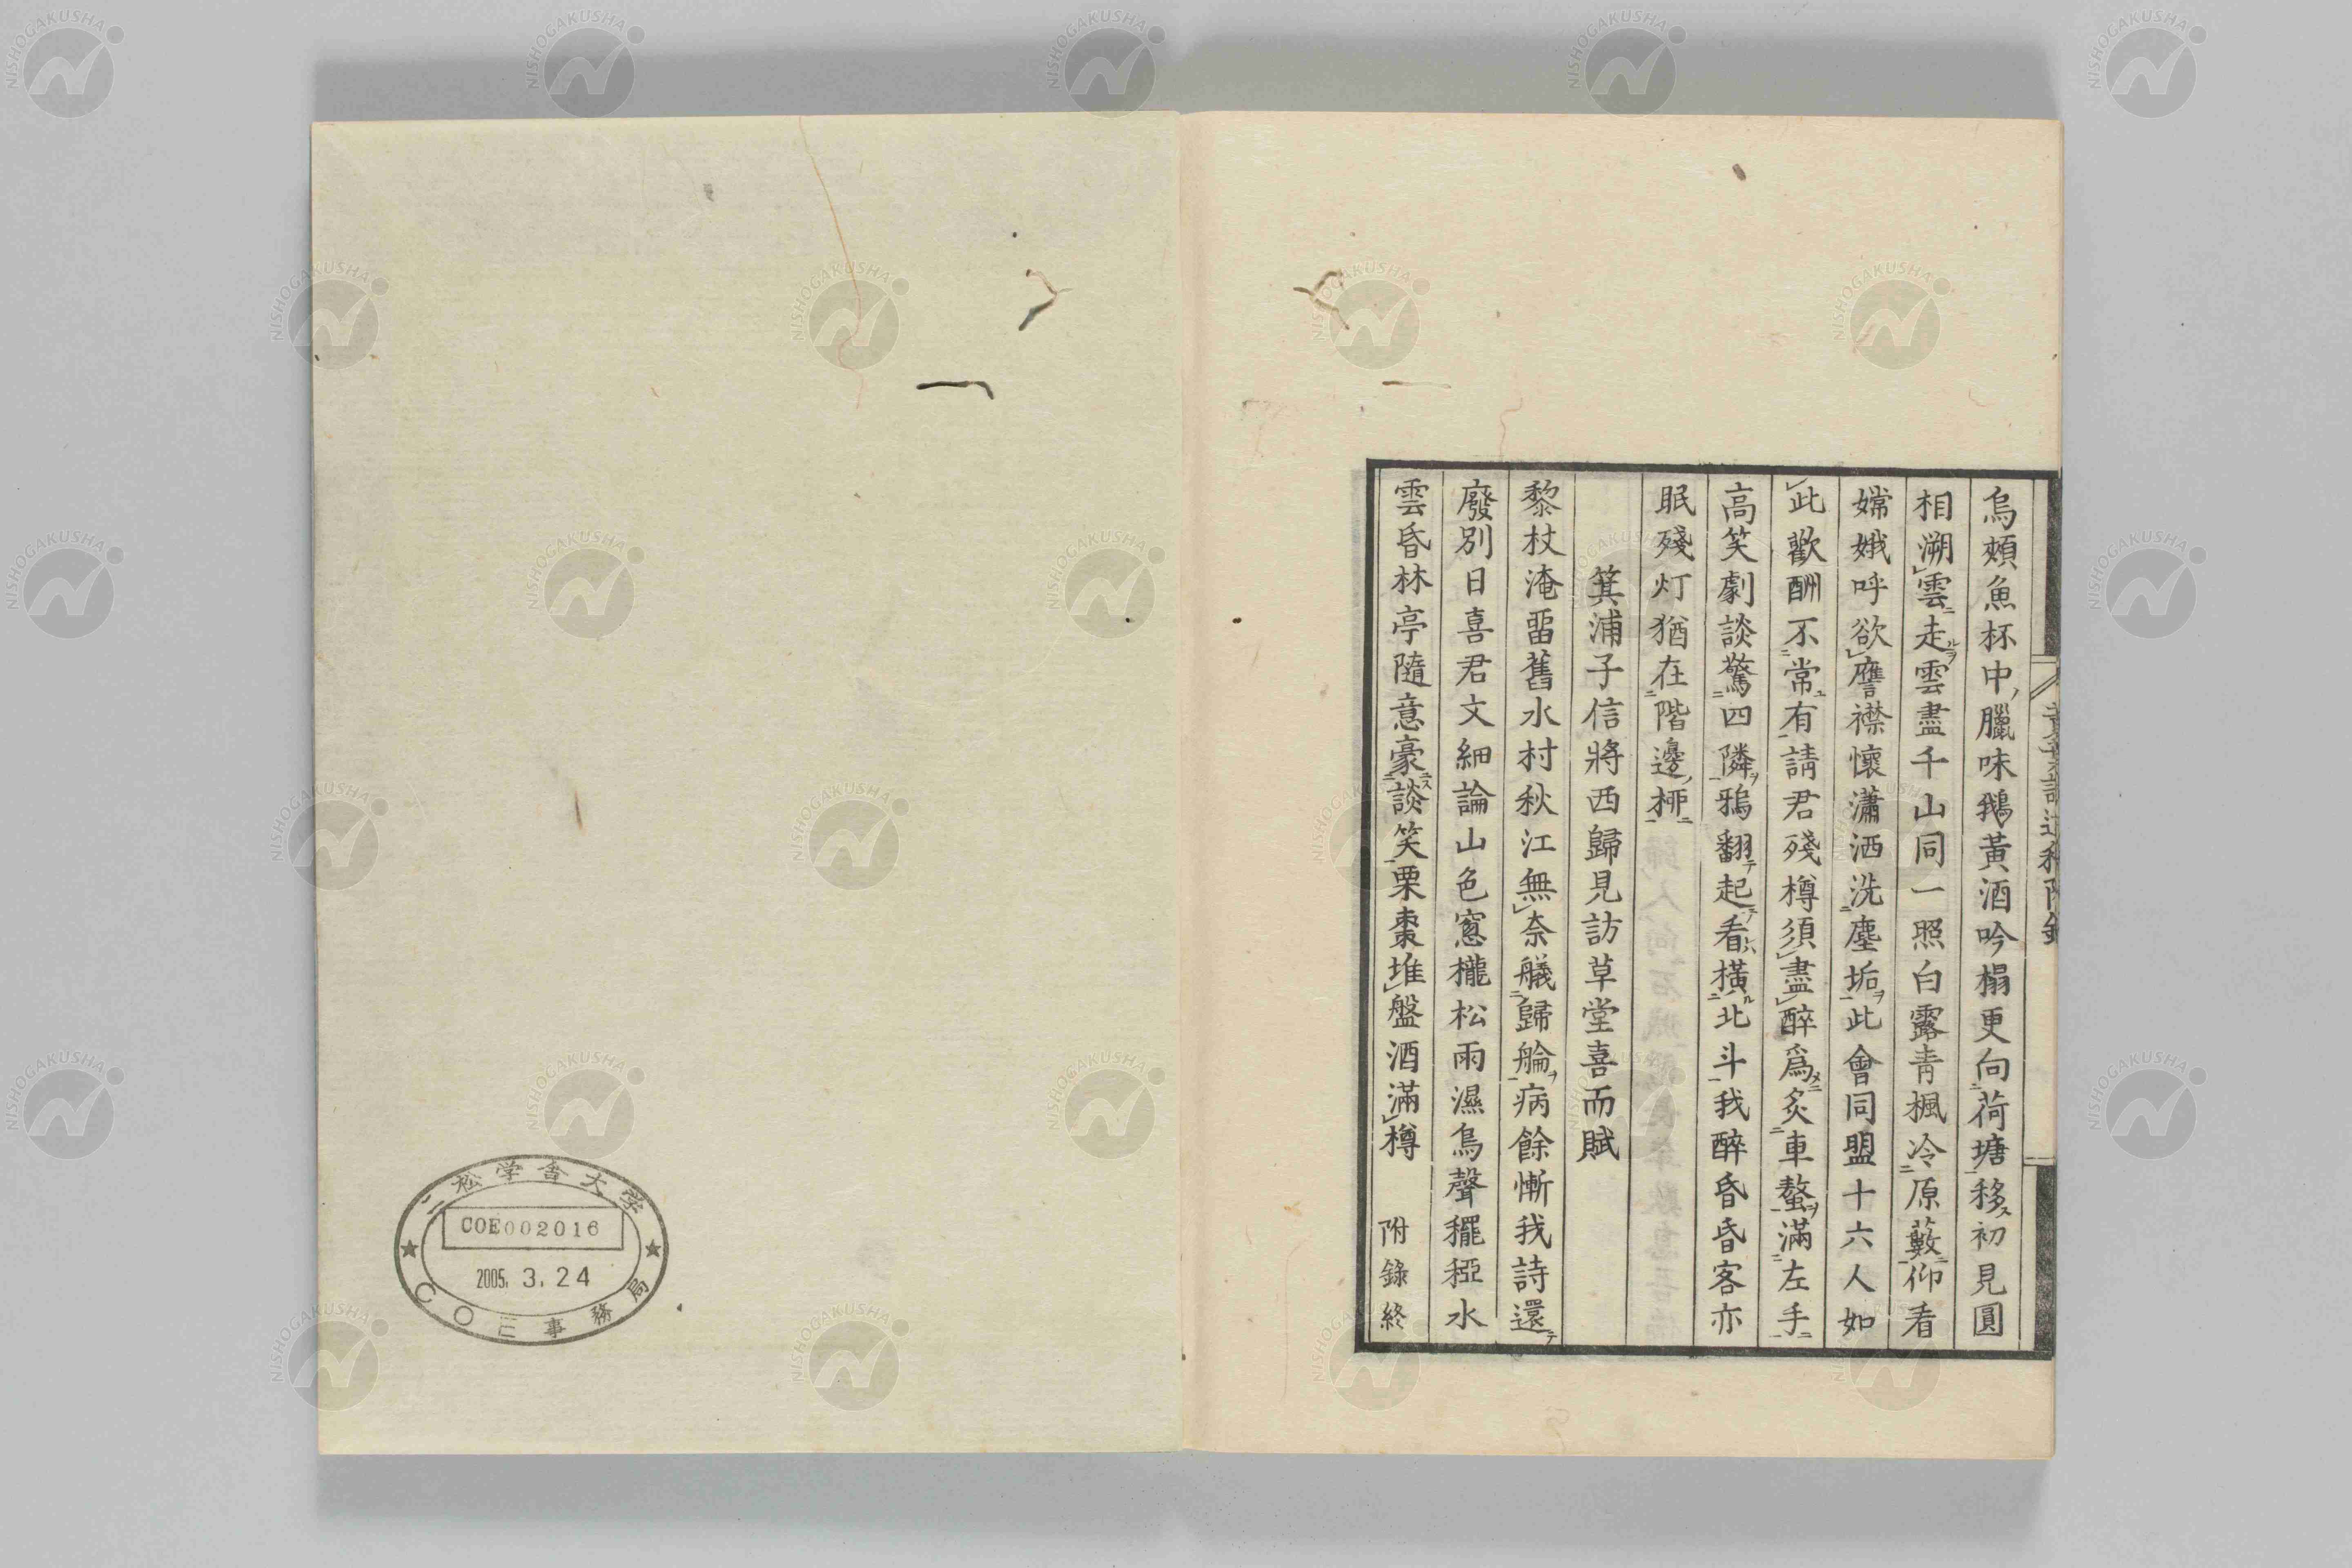 烏頰魚杯中臘味鵝黃酒吟榻更向荷塘移初見圓
相溯雲走雲盡千山同一照白露靑楓冷原藪仰看
嫦娥呼欲譍襟懷瀟洒洗塵垢此會同盟十六人如
此歡酬不常有請君殘樽須盡醉爲炙車螯滿左手
高笑劇談驚四隣鴉翻起看橫北斗我醉昏昏客亦
眠殘灯猶在階邊桺
箕浦子信將西歸見訪草堂喜而賦
黎杖淹畱舊水村秋江無奈艤歸艙病餘慚我詩還
廢別日喜君文細論山色窻櫳松雨濕鳥聲䆉稏水
雲昏林亭隨意豪談笑栗棗堆盤酒滿樽 附錄終
二松学舎大学
COE002016
2005. 3. 24
COE事務局
NISHOGAKUSHA